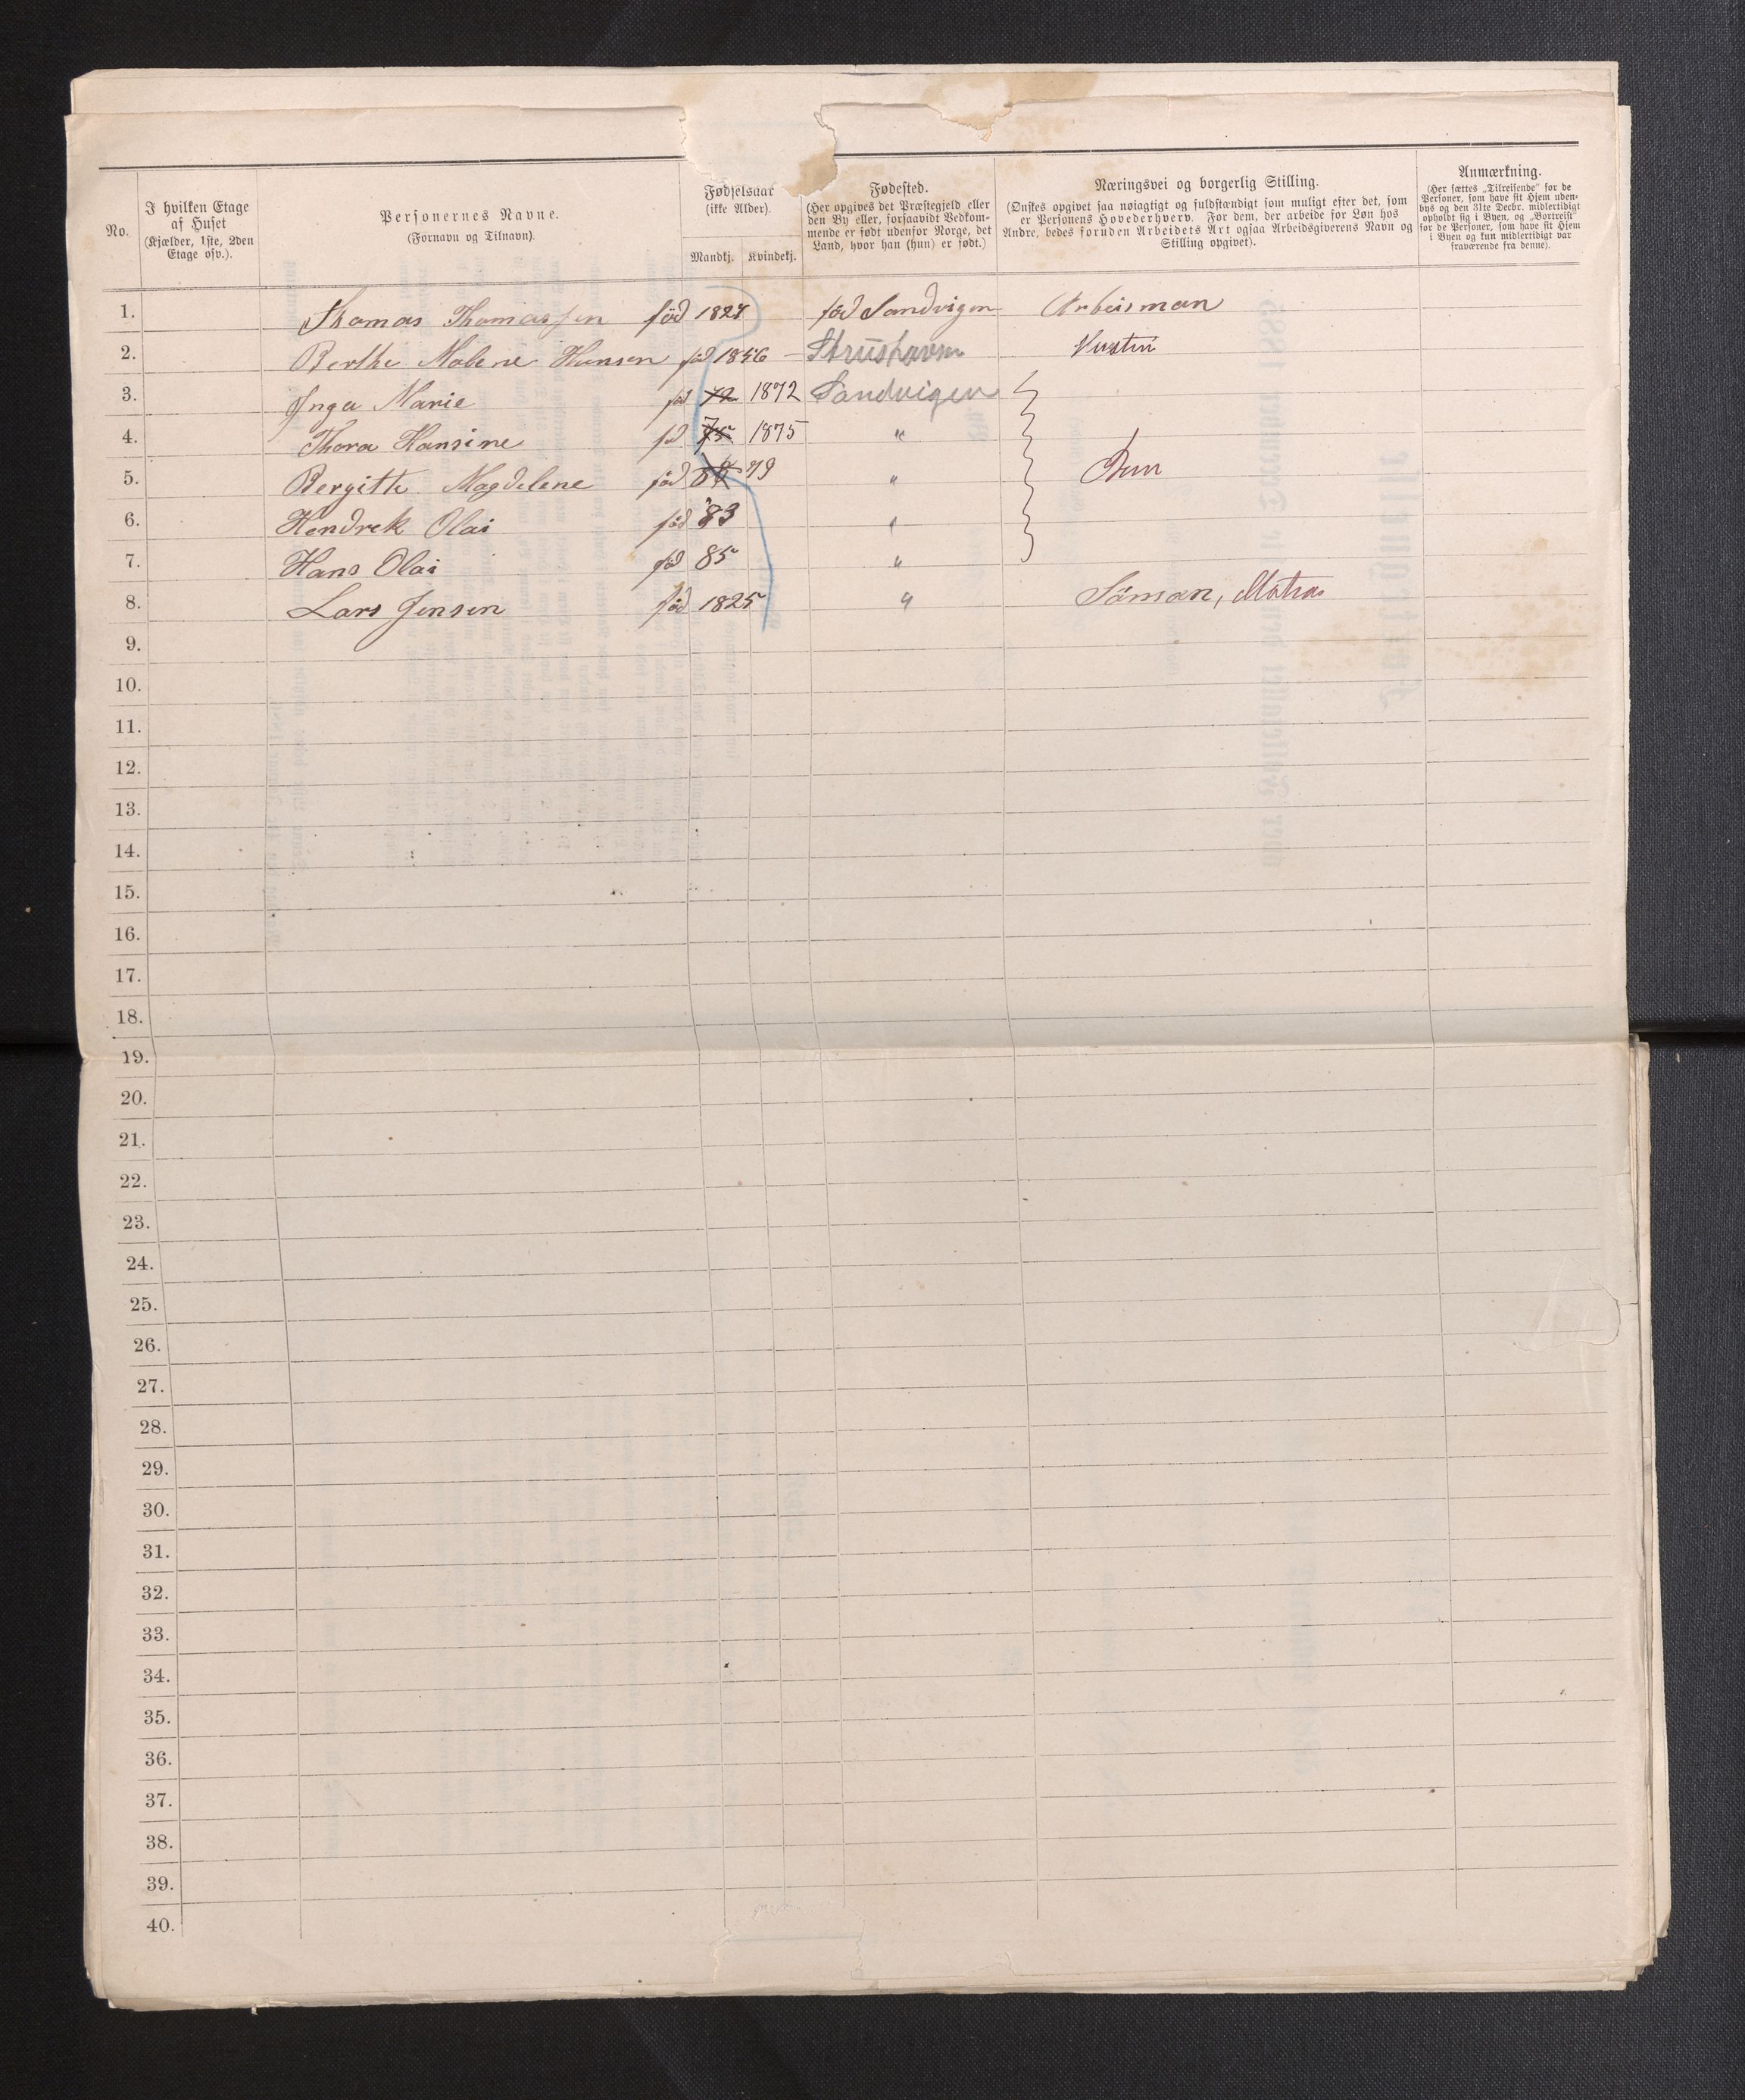 No.
I hvilken Etage
af Huset
(Kjælder, 1ste, 2den
Etage osv.).
Personernes Navne.
(Fornavn og Tilnavn).
Fødselsaar
(ikke Alder).
Mandkj. Kvindekj.
Fødested.
(Her opgives det Præstegjeld eller
den By eller, forsaavidt Vedkom-
mende er født udenfor Norge, det
Land, hvor han (hun) er født.)
Næringsvei og borgerlig Stilling.
(Ønskes opgivet saa nøiagtigt og fuldstændigt som muligt efter det, som
er Personens Hovederhverv. For dem, der arbeide for Løn hos
Andre, bedes foruden Arbeidets Art ogsaa Arbeidsgiverens Navn og
Stilling opgivet).
Anmærkning.
(Her sættes „Tilreisende" for de
Personer, som have sit Hjem uden-
bys og den 31te Decbr. midlertidigt
opholdt sig i Byen, og „Bortreist"
for de Personer, som have sit Hjem
i Byen og kun midlertidigt var
fraværende fra denne).
1. Thomas Thomassen föd 182 föd Sandvigen Arbeisman
2. Berthe Malene Hansen föd 1846
3. Inga Marie föd 72 1872 Sandvigen
4. Thora Hansine föd 75 1875 "
5. Bergithe Magdelene föd 79 " Barn
6. Hendrek Olai föd 83 "
7. Hans Olai föd 85 "
8. Lars Jensen föd 1825 " Söman, Matros
9.
10.
11.
12.
13.
14.
15.
16.
17.
18.
19.
20.
21.
22.
23.
24.
25.
26.
27.
28.
29.
30.
31.
32.
33.
34.
35.
36.
37.
38.
39.
40.